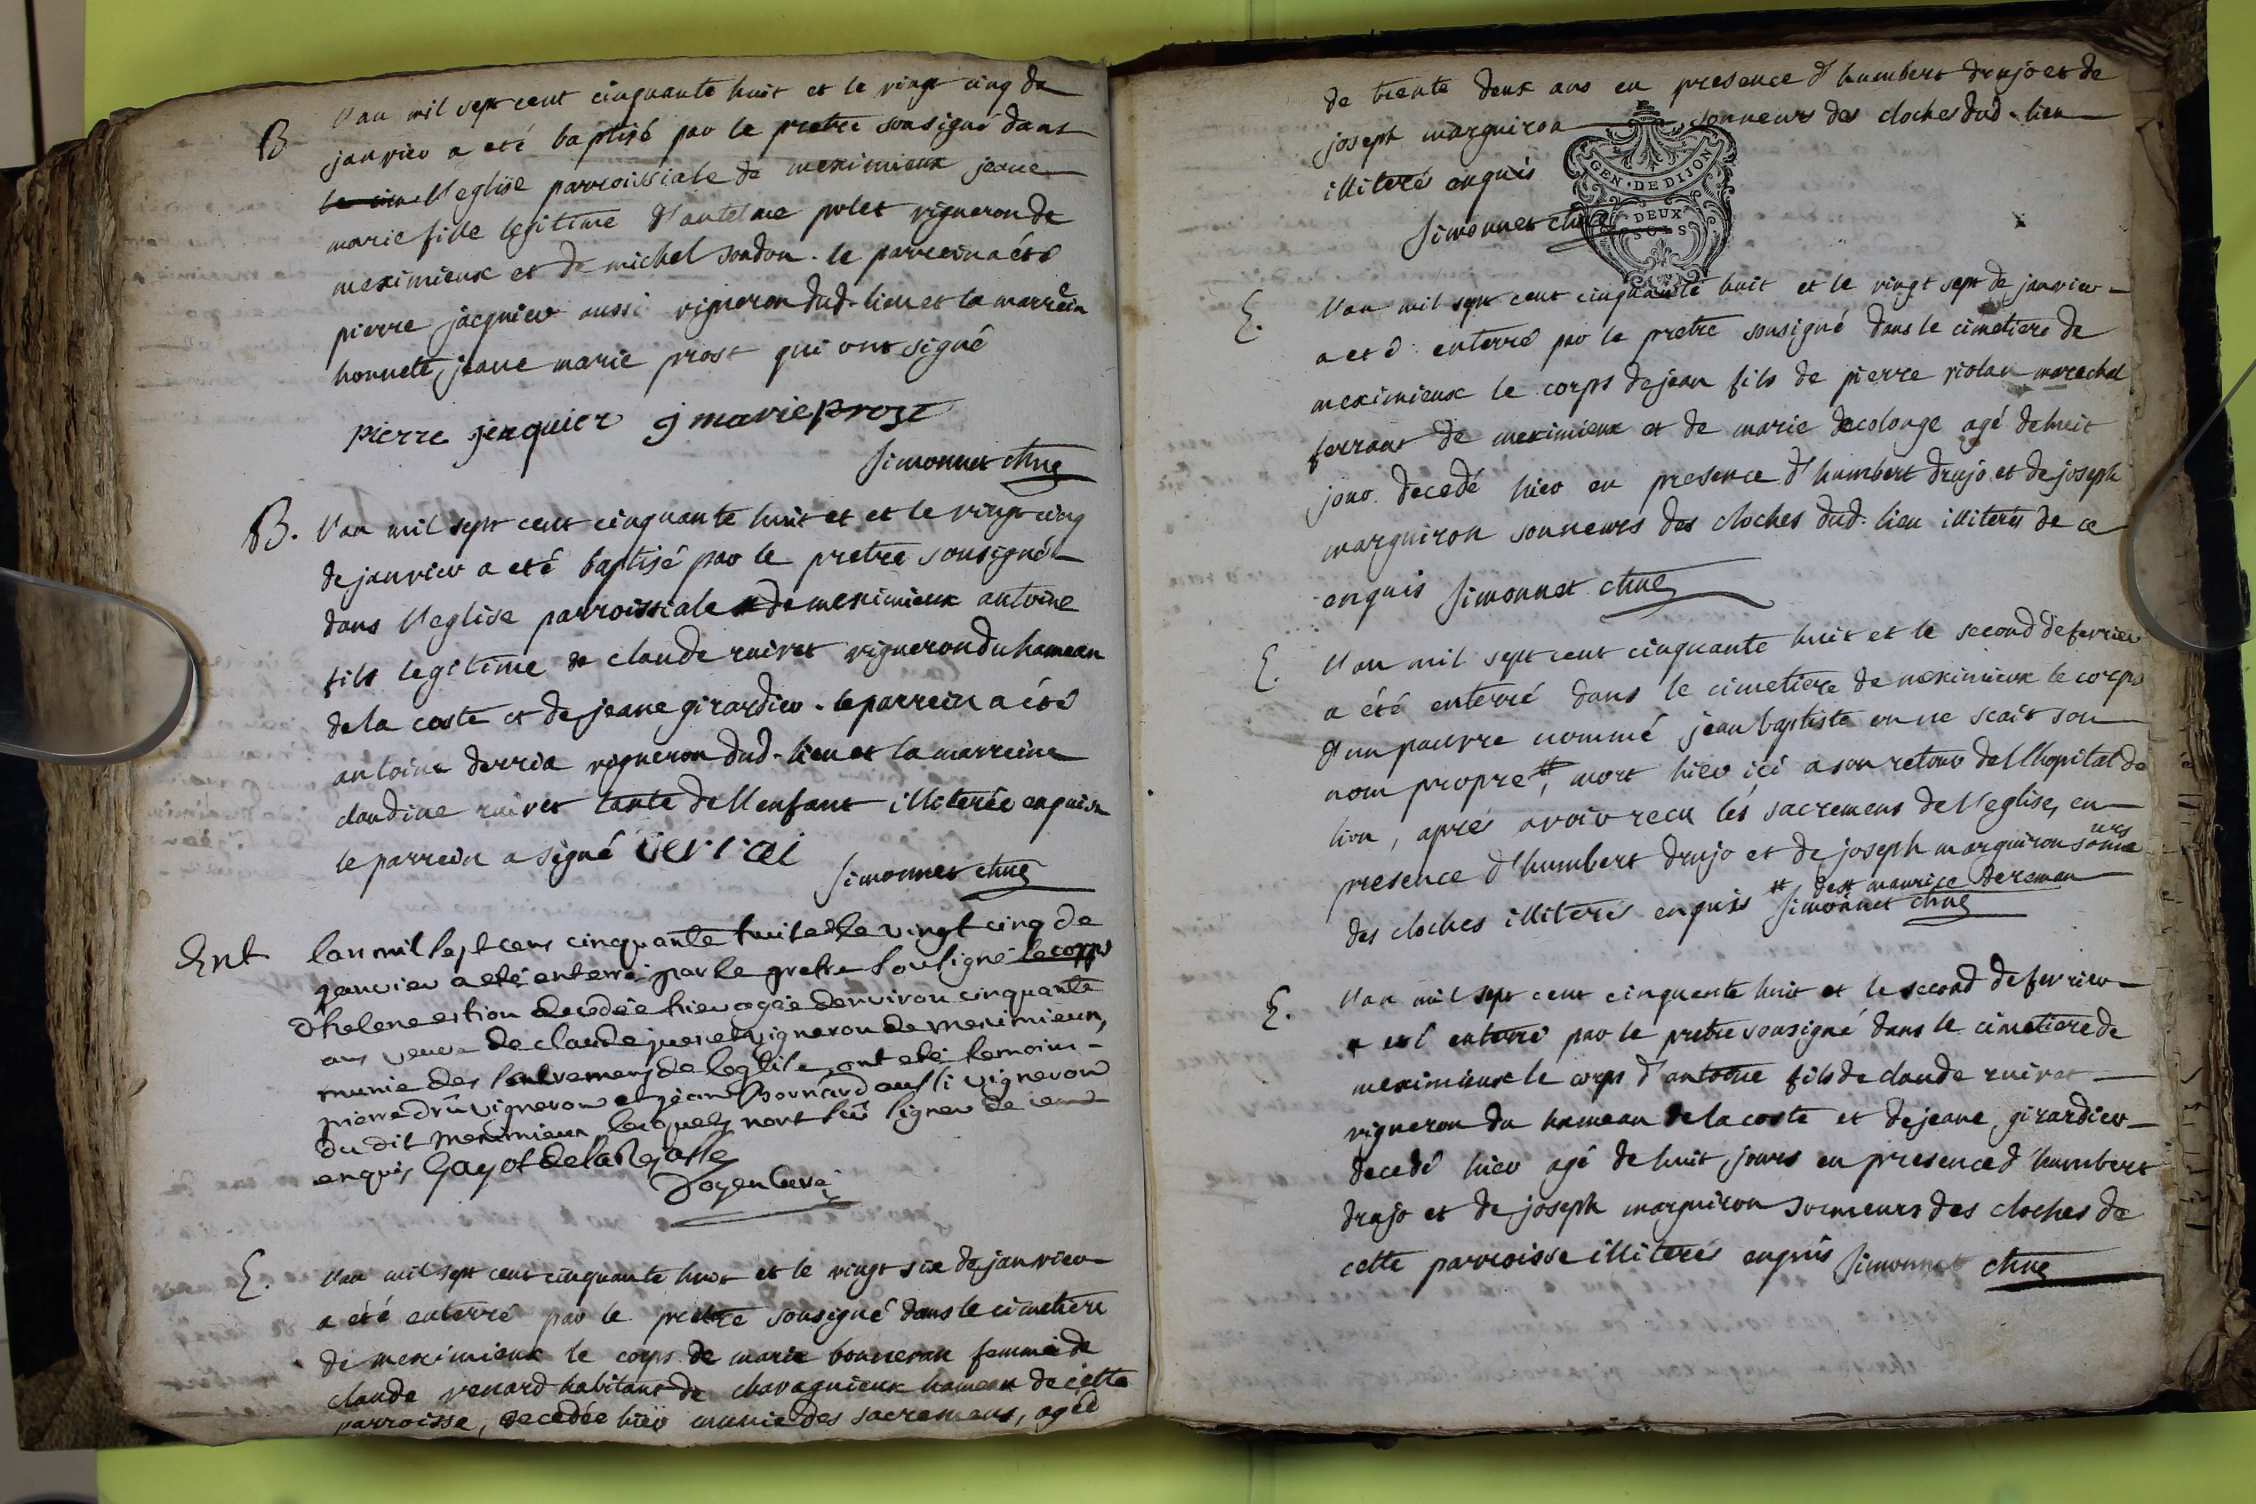 B
l'an mil sept cent cinquante huit et le vingt cinq de
janvier a eté baptisé par le pretre sousigné dans
l'eglise parroissiale de meximieux jeane
marie fille legitime d'antelme polet vigneron de
meximieux et de michel sondon . le parrein a été
pierre jacquier aussi vigneron dud. lieu et la marrein
honnete jeane marie prost qui ont signé
pierre jeaquier j marie prost
Simonnet chne
B. l'an mil sept cent cinquante huit et et le vingt cinq
de janvier a eté baptisé par le pretre sousigné
dans l'eglise parroissiale de meximieux antoine
fils legitime de claude ruivet vigneron du hameau
de la coste et de jeane girardier . le parrein a été
antoine derria vigneron dud. lieu et la marreine
claudine ruivet tante de l'enfant illiterée enquise
le parrein a signé
Simonnet chne
Ent lan mil sept cens cinquante huit et le vingt cinq de
janvier a eté enterré par le pretre sousigné le corps
d'helene estion decedée hier agée denviron cinquante
ans veuve de claude juenet vigneron de meximieux,
munie des sacremens de leglise, ont eté temoins
pierre dru vigneron et jean bornard aussi vigneron
du dit meximieux lesquels n'ont sû signer de ce
enquis Gayot de la Rejasse
Doyen Curé
E. l'an mil sept cent cinquante huit et le vingt six de janvier
a été enterré par le pretre sousigné dans le cimetiere
de meximieux le corps de marie bonneran femme de
claude renard habitant de chavagnieux hameau de cette
parroisse, decedée hier munie des sacremens, agée
de trente deux ans en presence d'humbert drujo et de
joseph marguiron sonneurs des cloches dud. lieu
illiterés enquis
GEN. DE DIJON
DEUX
SOLS
Simonnet chne
E. l'an mil sept cent cinquante huit et le vingt sept de janvier
a eté enterré par le pretre sousigné dans le cimetiere de
meximieux le corps de jean fils de pierre violan marechal
ferrant de meximieux et de marie decolonge agé de huit
jour decedé hier en presence d'humbert drujo et de joseph
marguiron sonneurs des cloches dud. lieu illiterés de ce
enquis Simonnet chne
E. l'an mil sept cent cinquante huit et le second de fevrier
a été enterré dans le cimetiere de meximieux le corps
d'un pauvre nommé jean baptiste on ne scait son
nom propre #, mort hier ici a son retour de l'hopital de
lion, aprés avoir recu lés sacremens de l'eglise, en
presence d'humbert drujo et de joseph marguiron sonneurs
des cloches illiterés enquis # de st maurice de reman
Simonnet chne
E. l'an mil sept cent cinquante huit et le second de fevrier
a eté enterré par le pretre sousigné dans le cimetiere de
meximieux le corps d'antoine fils de claude ruivet
vigneron du hameau de la coste et de jeane girardier
decedé hier agé de huit jours en presence d'humbert
drujo et de joseph marguiron sonneurs des cloches de
cette parroisse illiterés enquis Simonnet chne